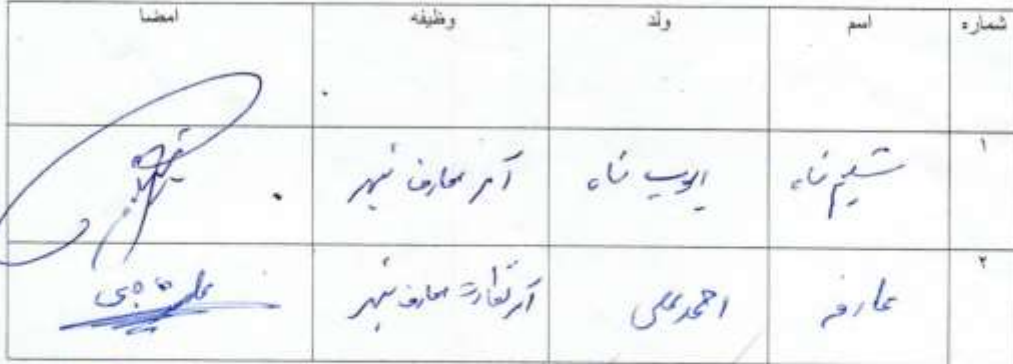 شماره اسم ولد وظیفه امضا
۱ شمیم شاه ایوب شاه آمر معارف شهر
۲ عارفه احمد علی آمر نظارت معارف شهر